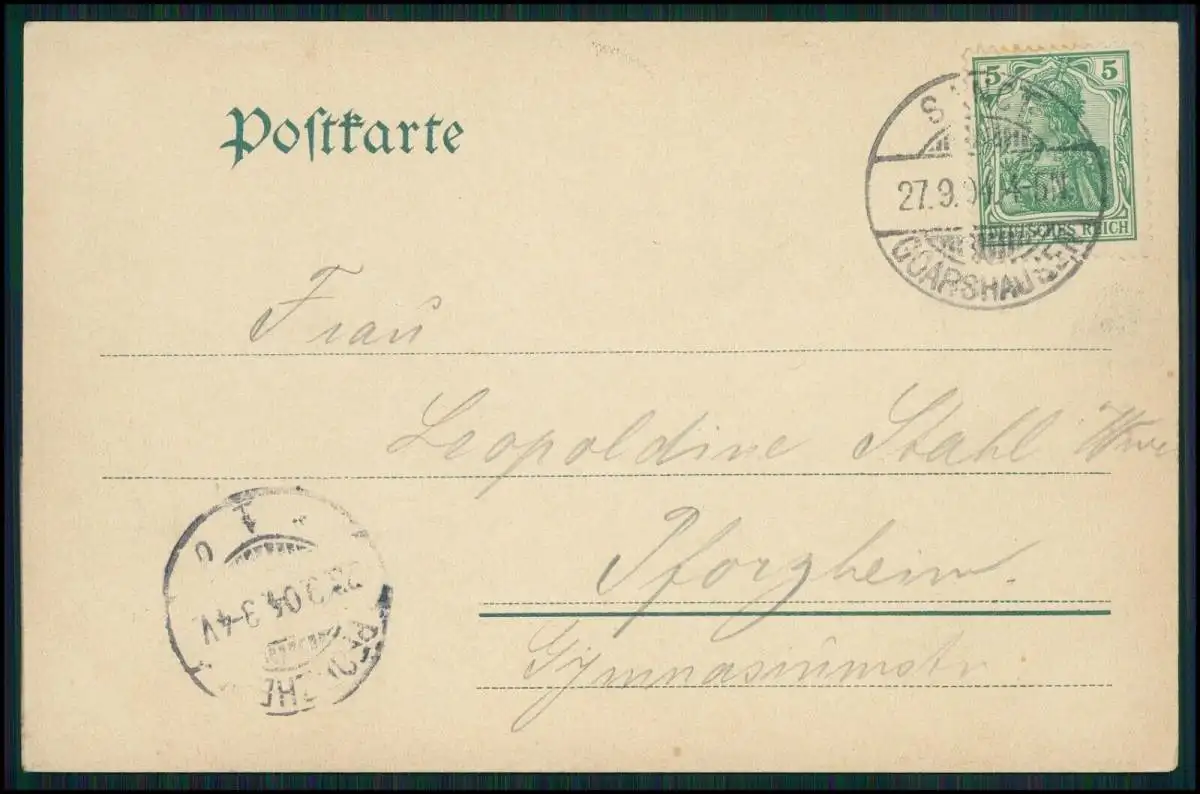 Postkarte
5 5
DEUTSCHES REICH
SANCT
27.9.04. 4-5N.
GOARSHAUSEN
Frau
Leopoldine Stahl Wwe
Pforzheim.
Gymnasiumstr
28.9.04. 3-4V.